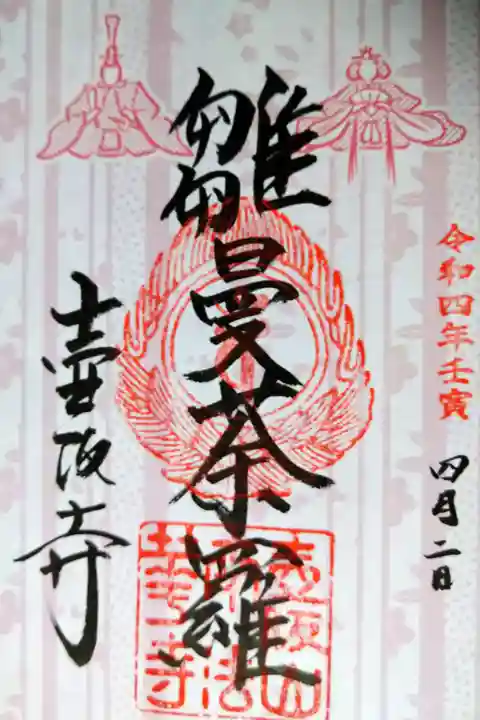 令和四年壬寅
四月二日
雛曼荼羅
壷阪寺